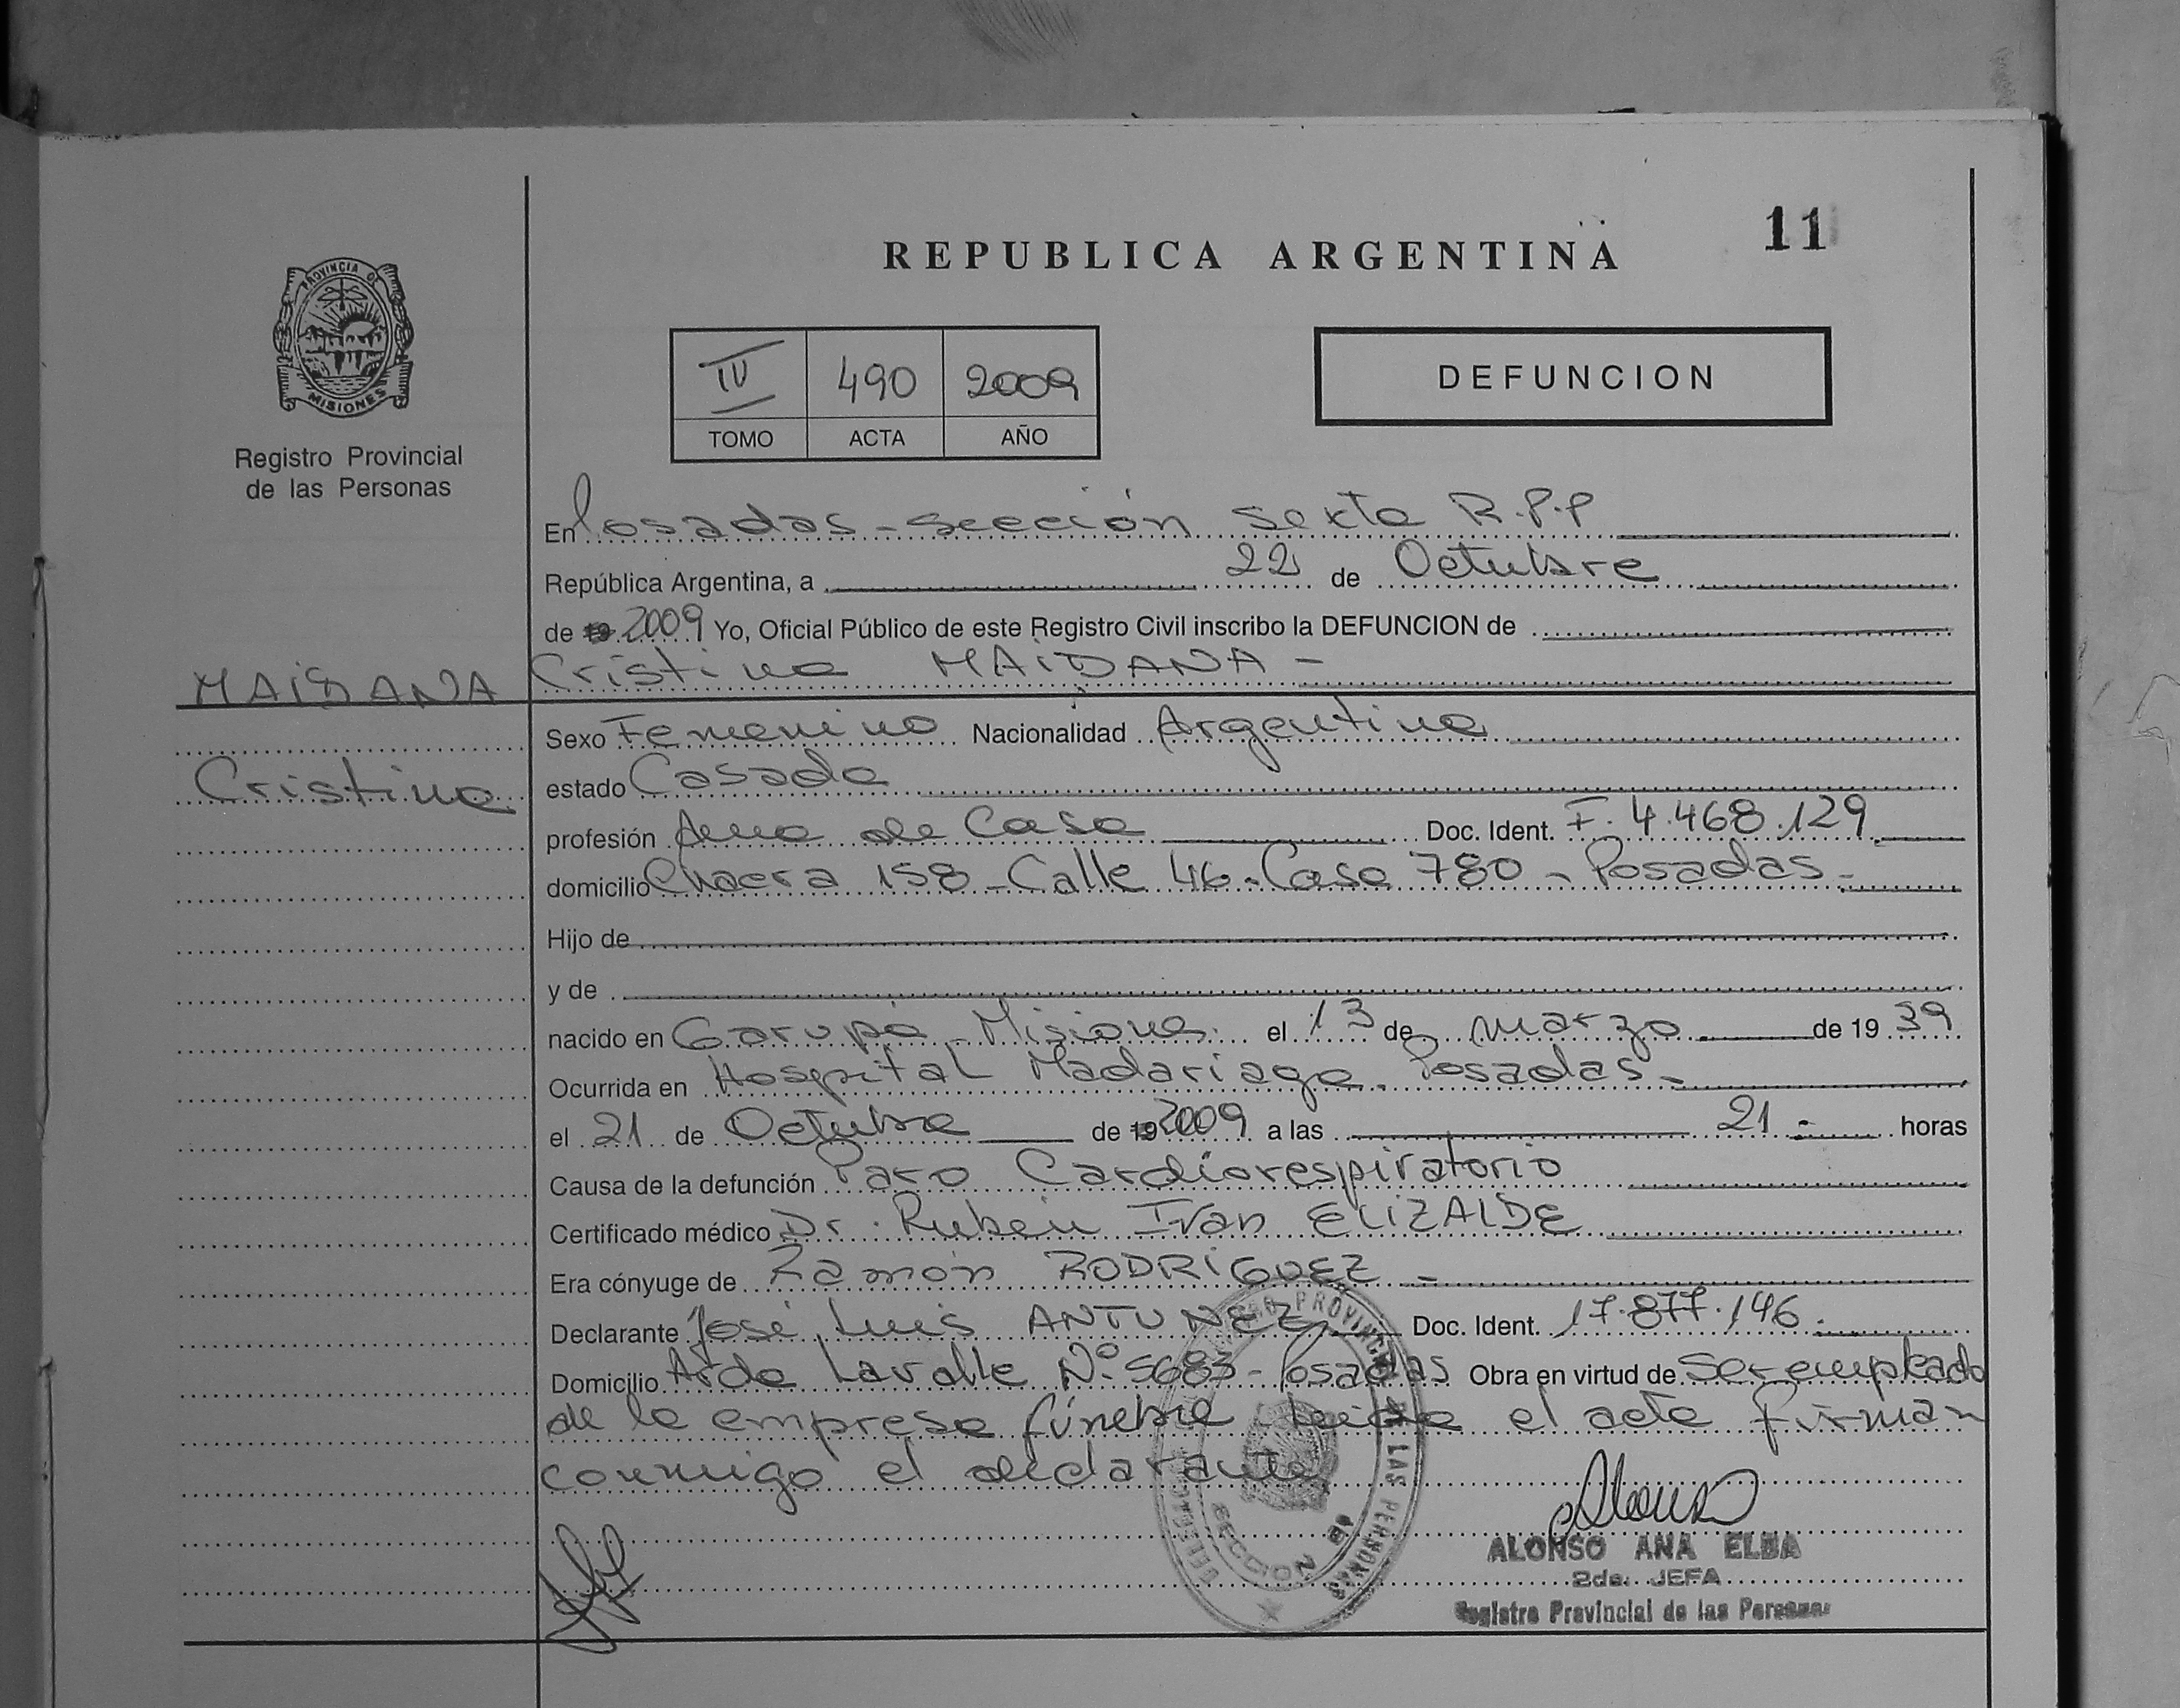 11
REPUBLICA ARGENTINA
PROVINCIA DE
MISIONES
Registro Provincial
de las Personas
IV 490 2009
TOMO ACTA AÑO
DEFUNCION
En Posadas - sección sexta R.P.P
República Argentina, a 22 de Octubre
de 19 2009 Yo, Oficial Público de este Registro Civil inscribo la DEFUNCION de
MAIDANA
Cristina MAIDANA -
Sexo Femenino Nacionalidad Argentina
Cristina
estado Casada
profesión Ama de Casa Doc. Ident. F. 4.468.129
domicilio Chacra 158 - Calle 46 - Casa 780 - Posadas -
Hijo de
y de
nacido en Garupá - Misiones el 13 de marzo de 19 39
Ocurrida en Hospital Madariaga - Posadas -
el 21 de Octubre de 19 2009 a las 21 - horas
Causa de la defunción Paro Cardiorespiratorio
Certificado médico Dr. Rubén Ivan ELIZALDE
Era cónyuge de Ramón RODRIGUEZ -
Declarante José Luis ANTUNEZ Doc. Ident. 17.877.146
Domicilio Avda Lavalle N° 5683 - Posadas Obra en virtud de Ser empleado
de la empresa fúnebre - Leida el acta firman
conmigo el declarante
PROVINCIAL DE LAS PERSONAS
SECCION 6a
ALONSO ANA ELBA
2da. JEFA
Registro Provincial de las Personas